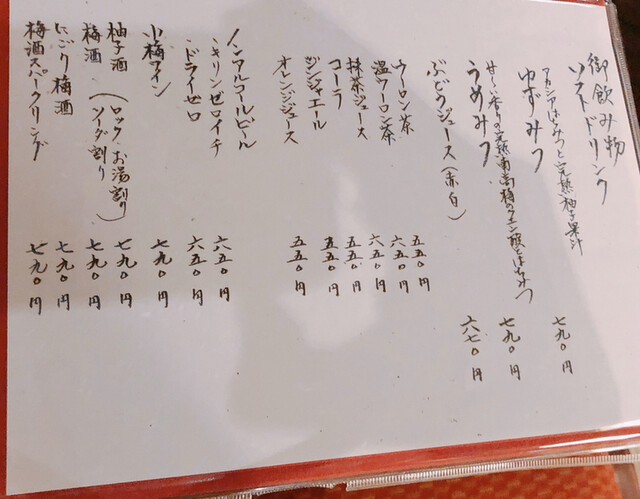 御飲み物
ソフトドリンク
アカシアはちみつと完熟柚子果汁
ゆずみつ 七九〇円
甘ーい香りの完熟南高梅のクエン酸とはちみつ
うめみつ 七九〇円
ぶどうジュース(赤白) 六八〇円
ウーロン茶 五五〇円
温ウーロン茶 六五〇円
抹茶ジュース 五五〇円
コーラ 五五〇円
ジンジャエール 五五〇円
オレンジジュース 五五〇円
ノンアルコールビール
・キリンゼロイチ 六五〇円
・ドライゼロ 六五〇円
小梅ワイン 七九〇円
柚子酒 (ロック・お湯割り 七九〇円
梅酒 ソーダ割り) 七九〇円
にごり梅酒 七九〇円
梅酒スパークリング 七九〇円